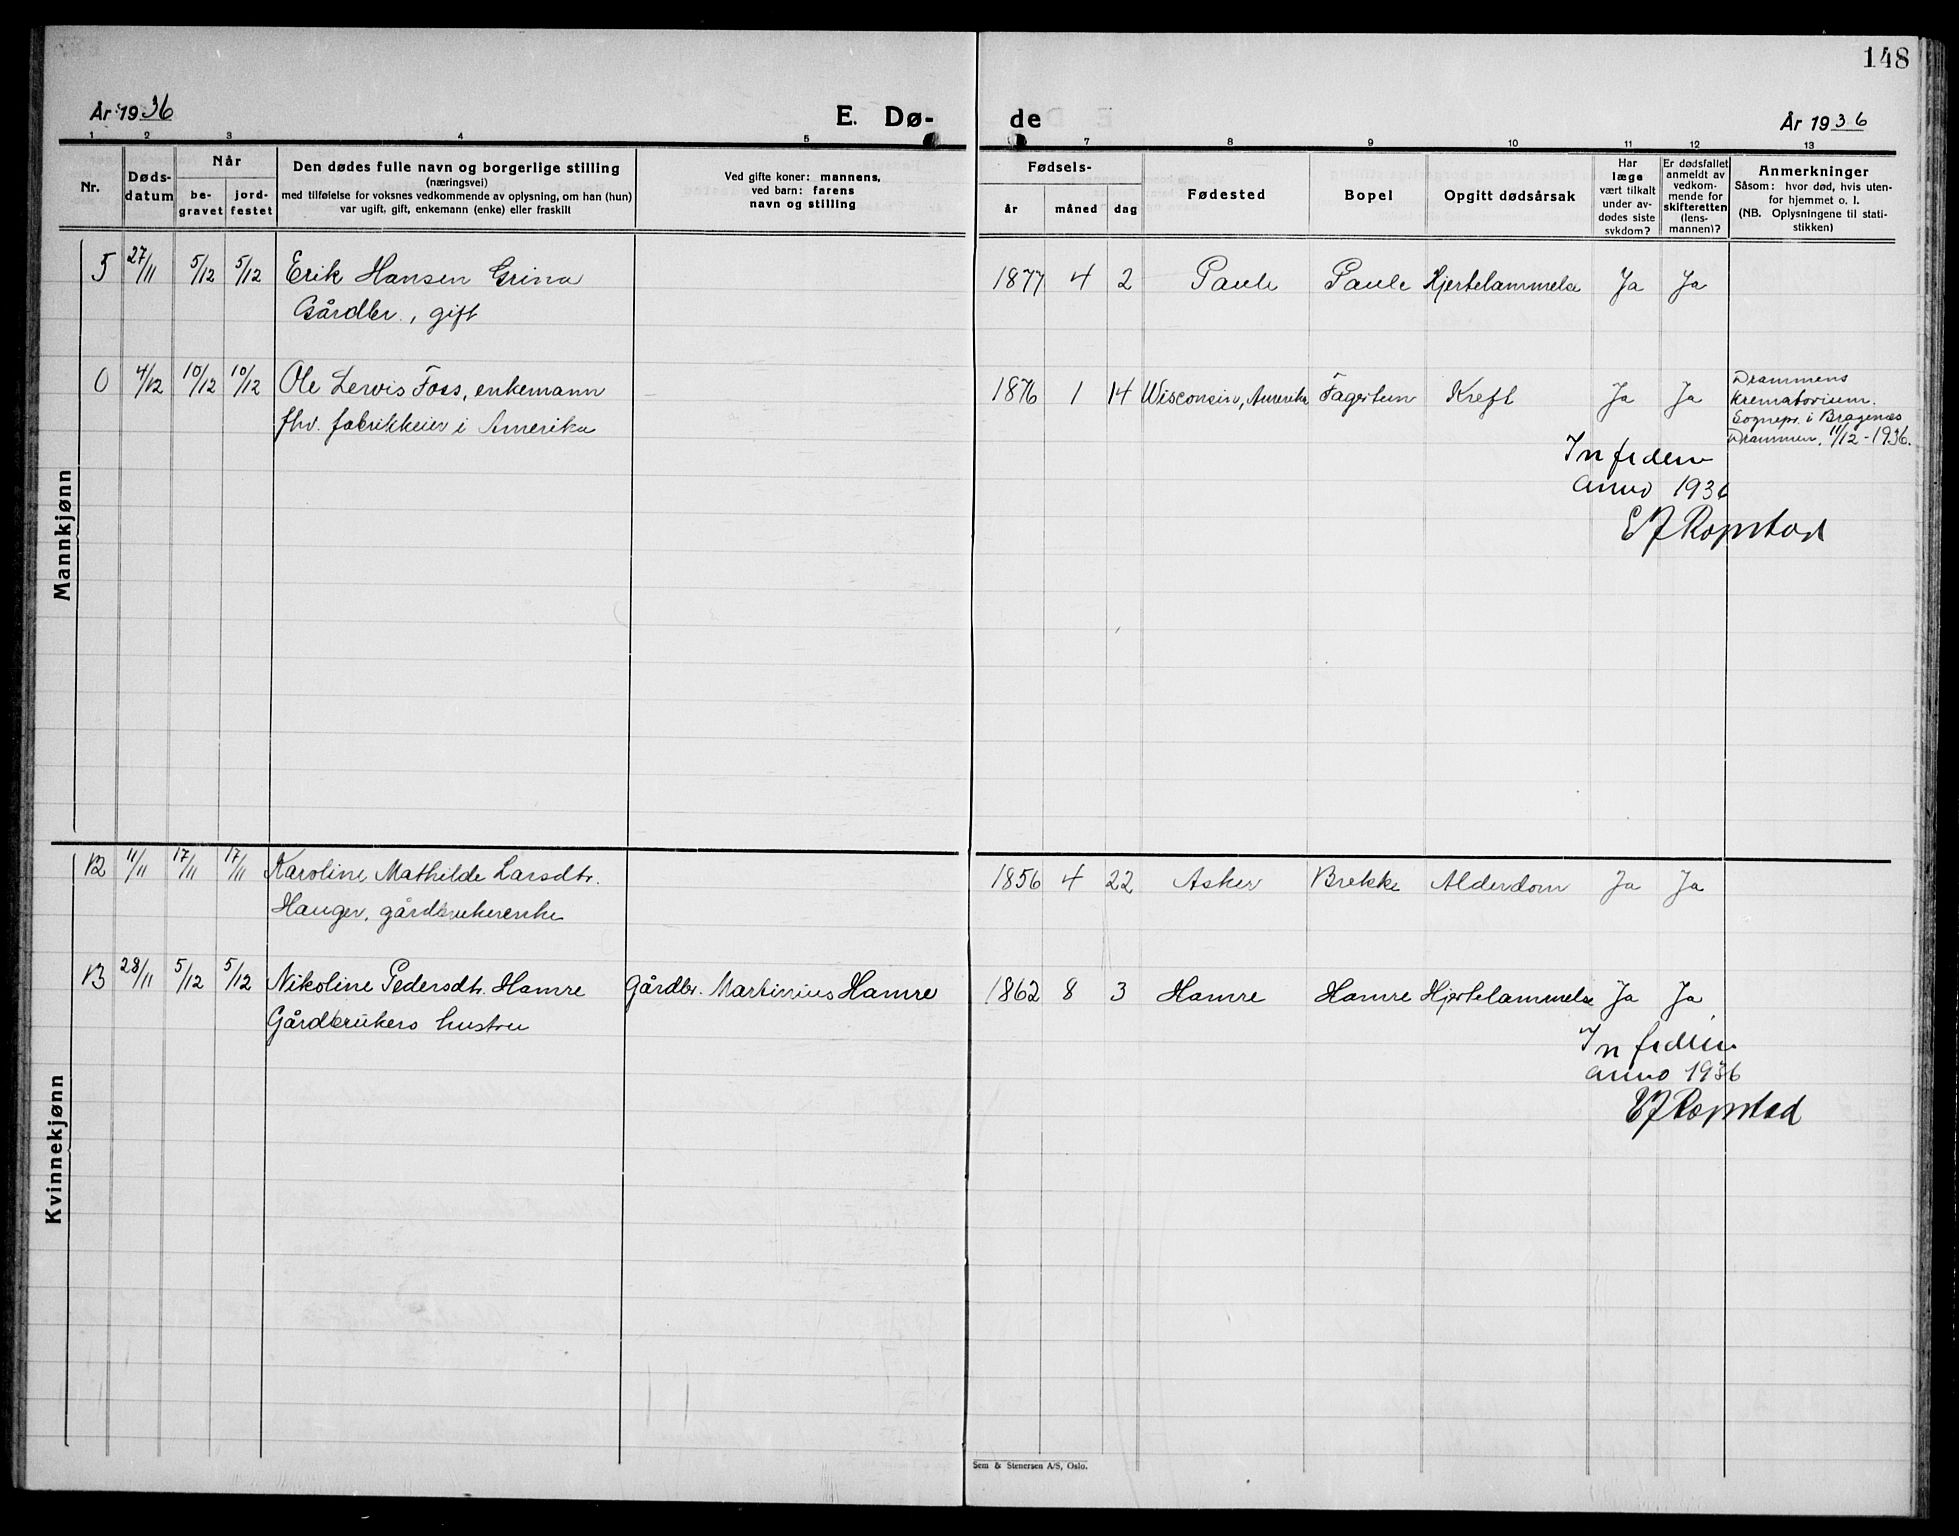 148
År 1936
E. Dø-
de
År 1936
1 2 3 4 5
7 8 9 10 11 12 13
Nr.
Døds-
datum
Når
be-
gravet
jord-
festet
Den dødes fulle navn og borgerlige stilling
(næringsvei)
med tilføielse for voksnes vedkommende av oplysning, om han (hun)
var ugift, gift, enkemann (enke) eller fraskilt
Ved gifte koner: mannens,
ved barn: farens
navn og stilling
Fødsels-
år måned dag
Fødested
Bopel
Opgitt dødsårsak
Har
læge
vært tilkalt
under av-
dødes siste
sykdom?
Er dødsfallet
anmeldt av
vedkom-
mende for
skifteretten
(lens-
mannen)?
Anmerkninger
Såsom: hvor død, hvis uten-
for hjemmet o. l.
(NB. Oplysningene til stati-
stikken)
Mannkjønn
5 27/11 5/12 5/12 Erik Hansen Grina 1877 4 2 Paule Paule Hjertelammelse Ja Ja
Gårdbr., gift
0 4/12 10/12 10/12 Ole Lewis Foss, enkemann 1876 1 14 Wisconsin, Amerika Fagertun Kreft Ja Ja
fhv. fabrikkeier i Amerika
Drammens
krematorium.
Sognepr. i Bragenæs
Drammen, 11/12-1936.
In fidem
anno 1936
EJ Ropstad
Kvinnekjønn
12 11/11 17/11 17/11 Karoline Mathilde Larsdtr. 1856 4 22 Asker Brekke Alderdom Ja Ja
Hauger, gårdbrukerenke
13 28/11 5/12 5/12 Nikoline Pedersdtr. Hamre Gårdbr. Martinius Hamre 1862 8 3 Hamre Hamre Hjertelammelse Ja Ja
Gårdbrukers hustru
In fidem
anno 1936
EJ Ropstad
Sem & Stenersen A/S, Oslo.